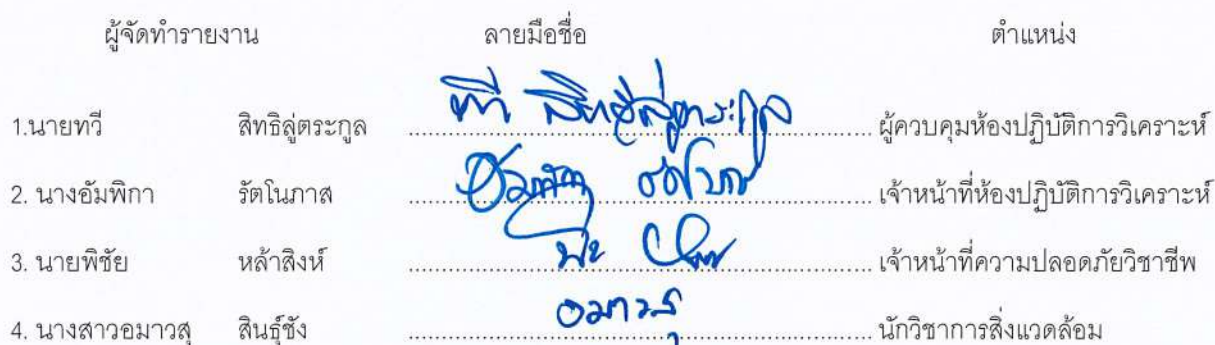 ผู้จัดทำรายงาน ลายมือชื่อ ตำแหน่ง
1.นายทวี สิทธิลู่ตระกูล ทวี สิทธิลู่ตระกูล ผู้ควบคุมห้องปฏิบัติการวิเคราะห์
2. นางอัมพิกา รัตโนภาส เจ้าหน้าที่ห้องปฏิบัติการวิเคราะห์
3. นายพิชัย หล้าสิงห์ เจ้าหน้าที่ความปลอดภัยวิชาชีพ
4. นางสาวอมาวสุ สินธุ์ชัง อมาวสุ นักวิชาการสิ่งแวดล้อม